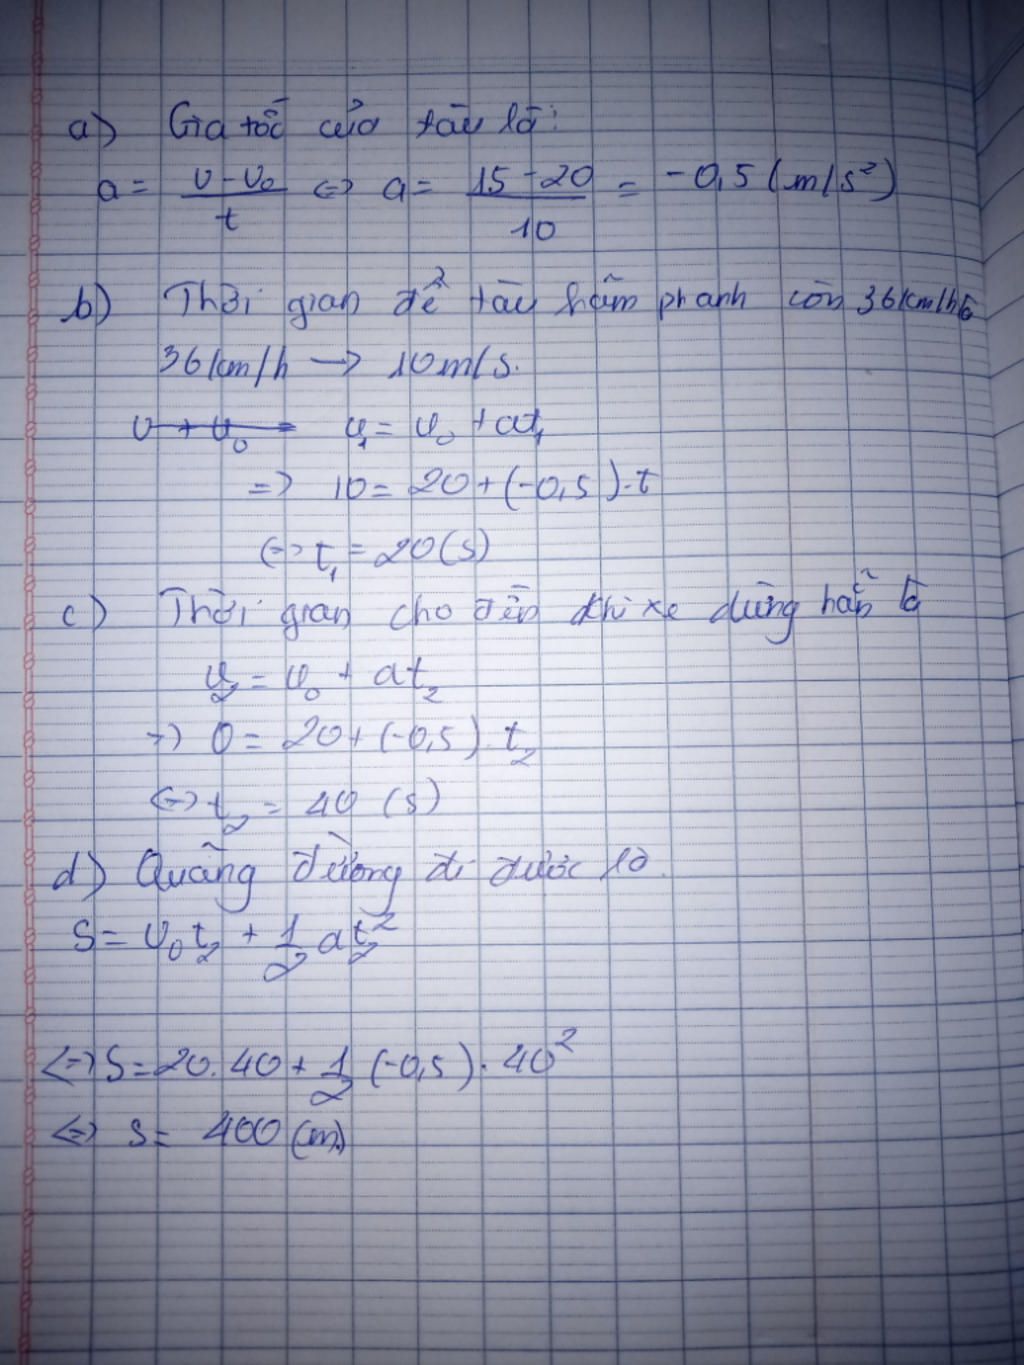 a) Gia tốc của tàu là:
a = \frac{v - v₀}{t} <=> a = \frac{15 - 20}{10} = -0,5 (m/s²)
b) Thời gian để tàu hãm phanh còn 36km/h là
36km/h → 10m/s.
v + v₀ = v₁ = v₀ + at₁
=> 10 = 20 + (-0,5).t
<=> t₁ = 20 (s)
c) Thời gian cho đến khi xe dừng hẳn là
v₂ = v₀ + at₂
=> 0 = 20 + (-0,5).t₂
<=> t₂ = 40 (s)
d) Quãng đường đi được là.
S = v₀t₂ + \frac{1}{2} at₂²
<=> S = 20.40 + \frac{1}{2} (-0,5).40²
<=> S = 400 (m)